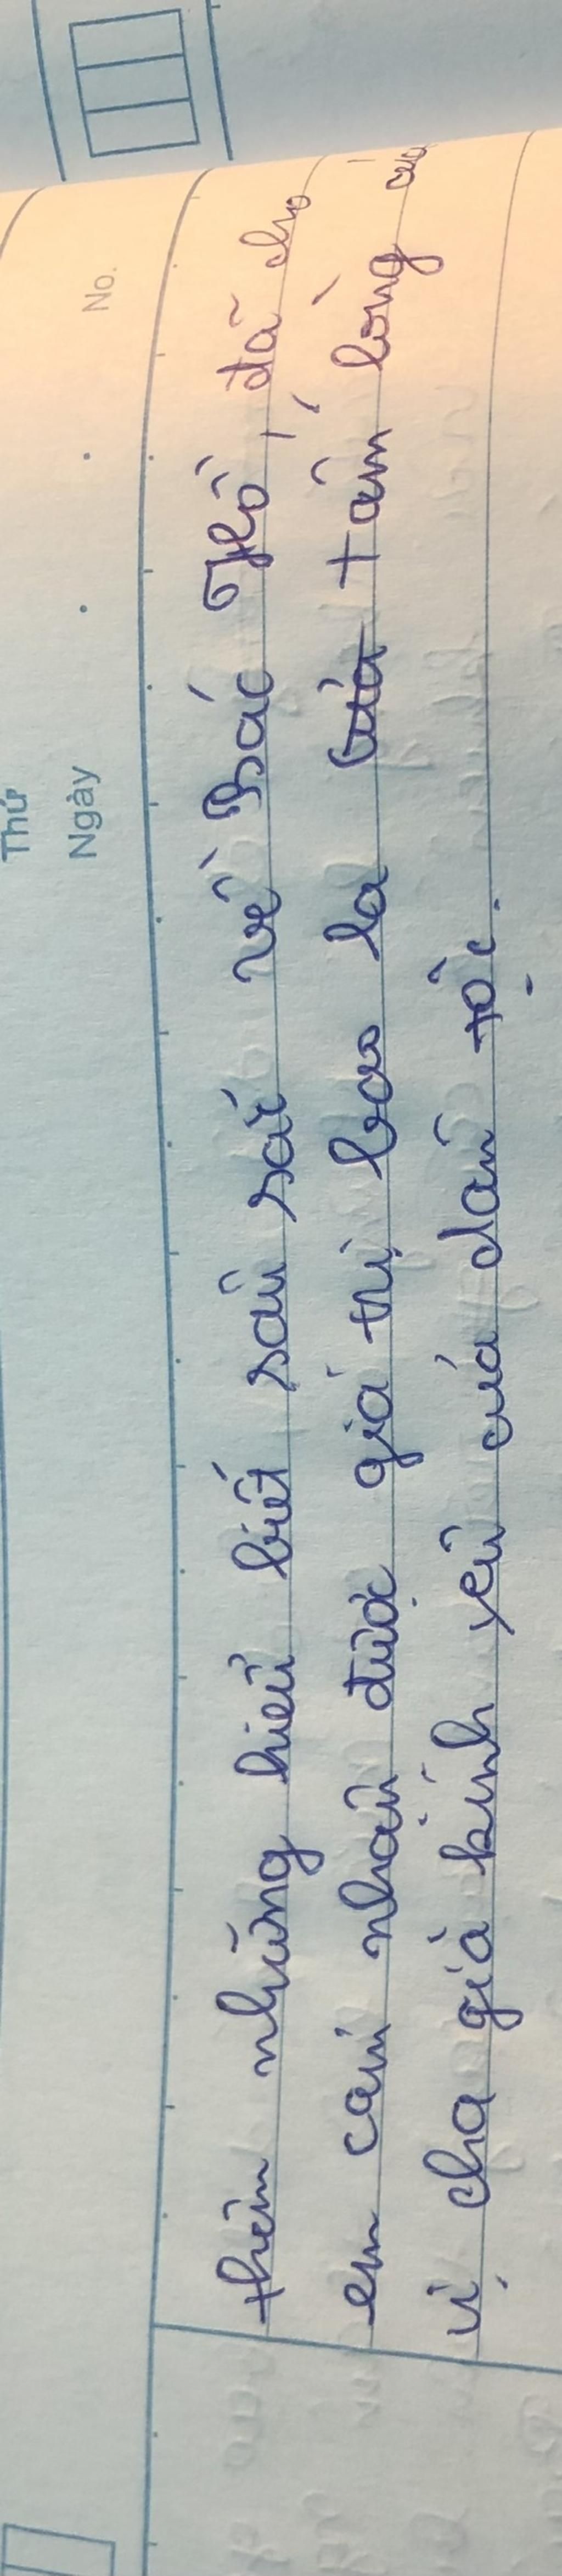 Thứ
Ngày . . No.
thêm những hiểu biết sâu sắc về Bác Hồ, đã cho
em cảm nhận được giá trị bao la của tấm lòng của
vị cha già kính yêu của dân tộc.